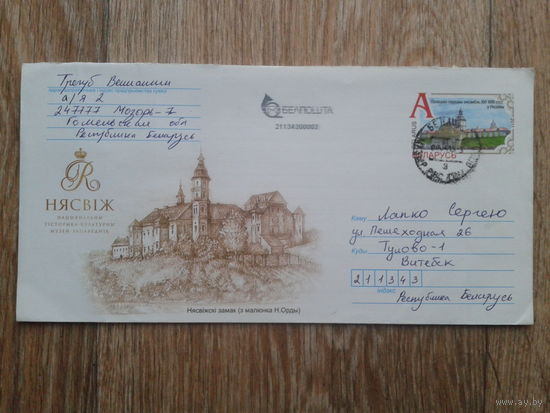 Трегуб Вениамин
а/я 2
247777 Мозырь-7
Гомельская обл
Республика Беларусь
БЕЛПОШТА
21134300002
A
БЕЛАРУСЬ
R
НЯСВІЖ
НАЦЫЯНАЛЬНЫ
ГІСТОРЫКА-КУЛЬТУРНЫ
МУЗЕЙ-ЗАПАВЕДНІК
Каму Лапко Сергею
ул. Пешеходная 26
Куды Тулово-1
Витебск
211343
індэкс
Республика Беларусь
Нясвіжскі замак (з малюнка Н.Орды)
www.ay.by